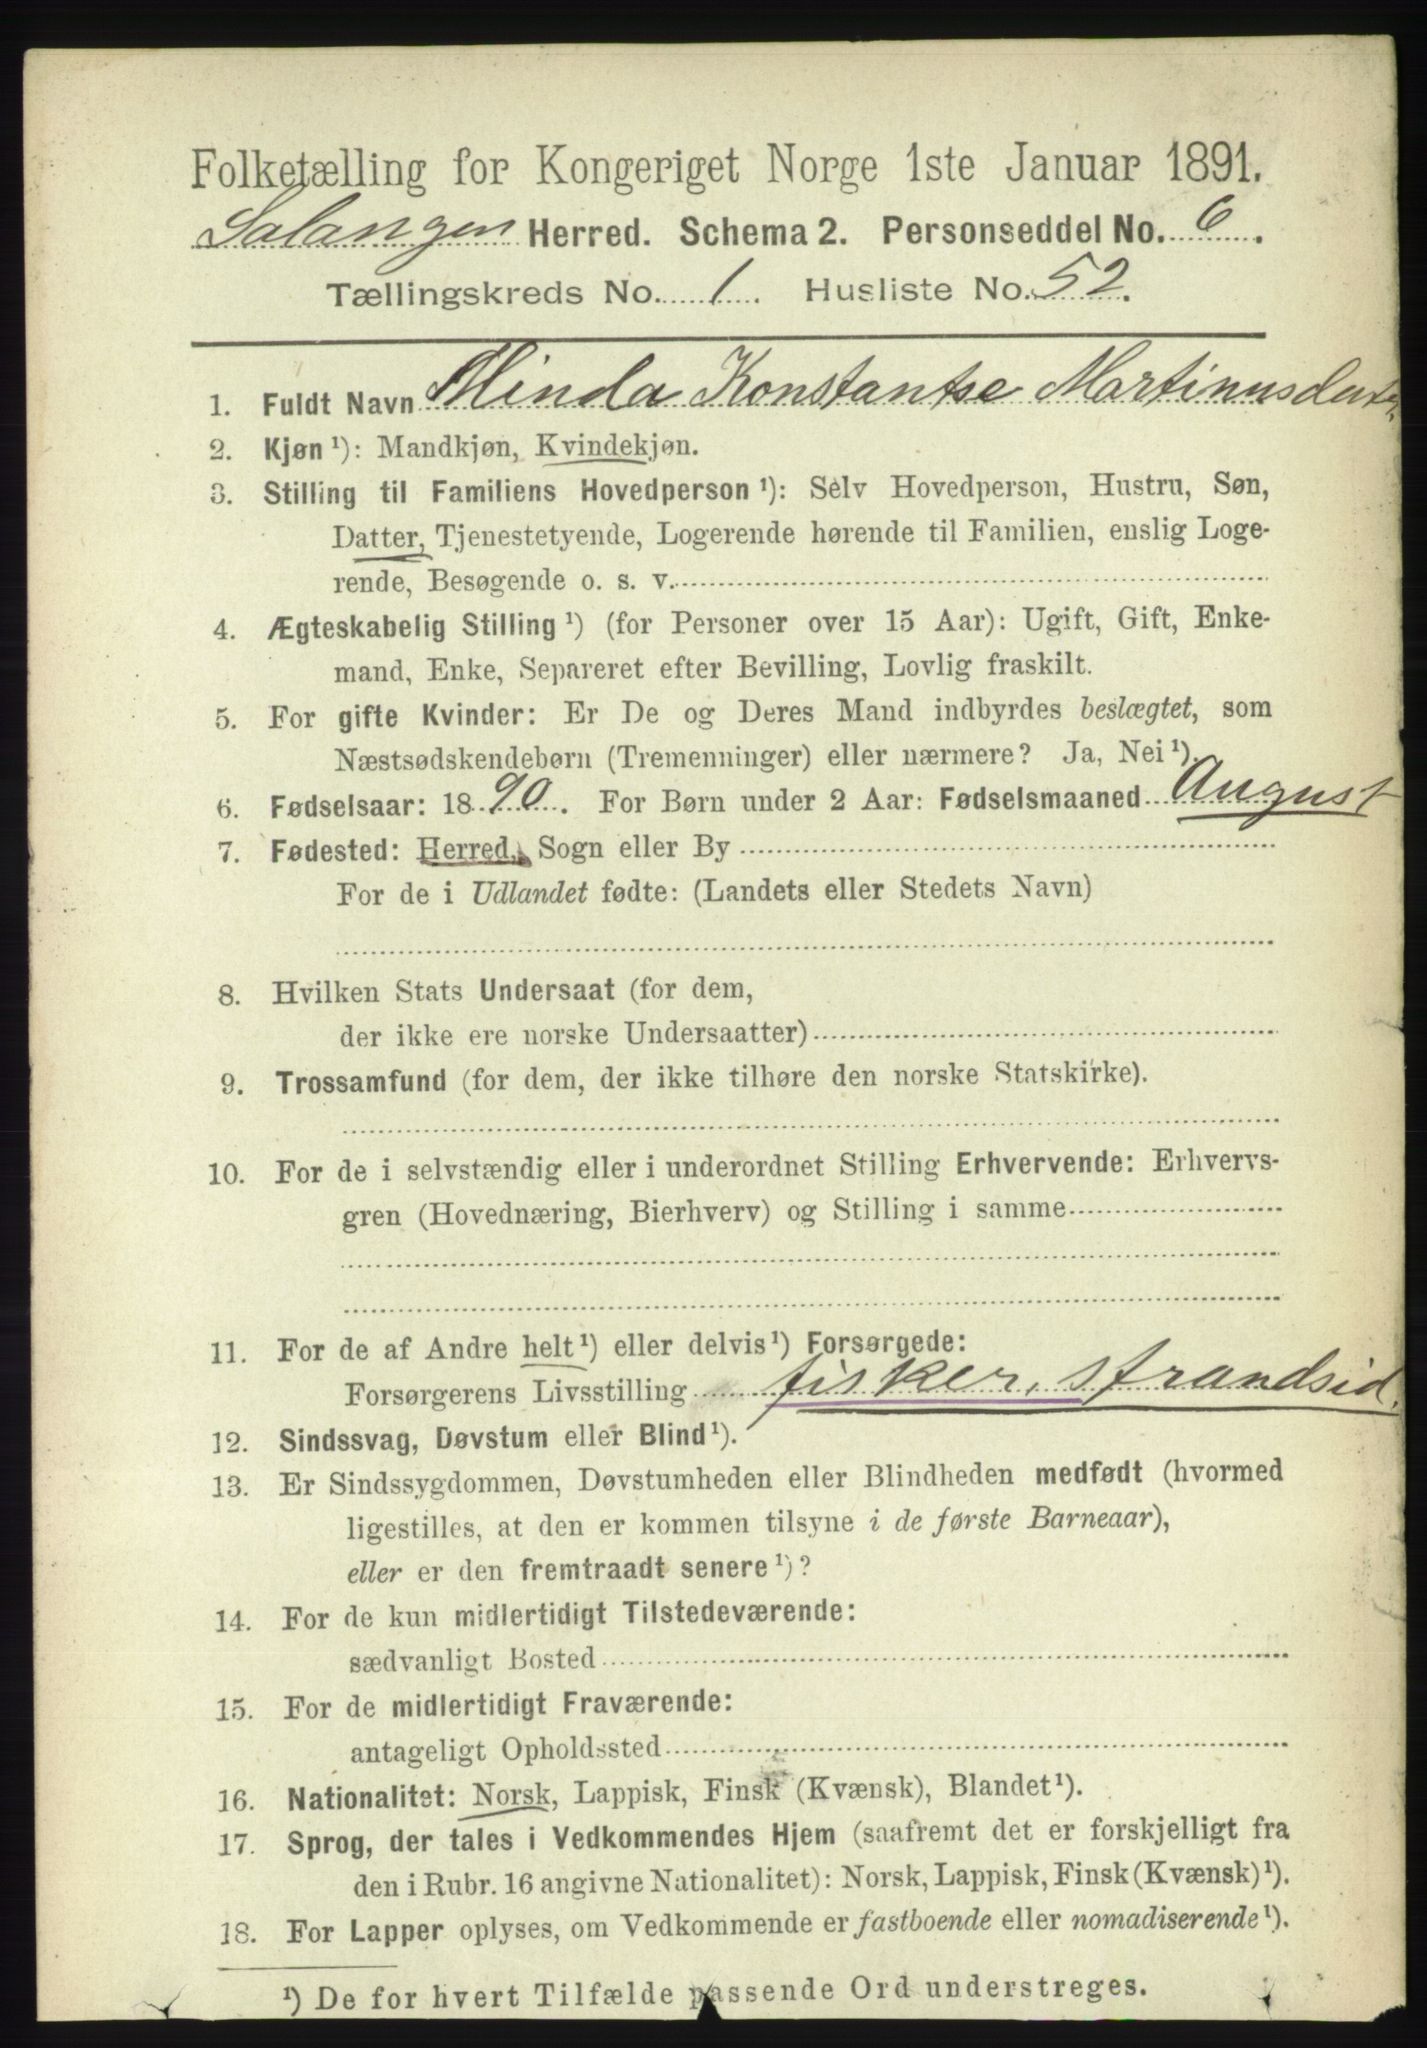 Folketælling for Kongeriget Norge 1ste Januar 1891.
Salangen Herred. Schema 2. Personseddel No. 6.
Tællingskreds No. 1. Husliste No. 52.
1. Fuldt Navn Minda Konstantse Martinusdatter
2. Kjøn ¹): Mandkjøn, Kvindekjøn.
3. Stilling til Familiens Hovedperson ¹): Selv Hovedperson, Hustru, Søn,
Datter, Tjenestetyende, Logerende hørende til Familien, enslig Loge-
rende, Besøgende o. s. v.
4. Ægteskabelig Stilling ¹) (for Personer over 15 Aar): Ugift, Gift, Enke-
mand, Enke, Separeret efter Bevilling, Lovlig fraskilt.
5. For gifte Kvinder: Er De og Deres Mand indbyrdes beslægtet, som
Næstsødskendebørn (Tremenninger) eller nærmere? Ja, Nei ¹).
6. Fødselsaar: 1890. For Børn under 2 Aar: Fødselsmaaned August
7. Fødested: Herred, Sogn eller By
For de i Udlandet fødte: (Landets eller Stedets Navn)
8. Hvilken Stats Undersaat (for dem,
der ikke ere norske Undersaatter)
9. Trossamfund (for dem, der ikke tilhøre den norske Statskirke).
10. For de i selvstændig eller i underordnet Stilling Erhvervende: Erhvervs-
gren (Hovednæring, Bierhverv) og Stilling i samme
11. For de af Andre helt ¹) eller delvis ¹) Forsørgede:
Forsørgerens Livsstilling fisker, strandsid.
12. Sindssvag, Døvstum eller Blind ¹).
13. Er Sindssygdommen, Døvstumheden eller Blindheden medfødt (hvormed
ligestilles, at den er kommen tilsyne i de første Barneaar),
eller er den fremtraadt senere ¹)?
14. For de kun midlertidigt Tilstedeværende:
sædvanligt Bosted
15. For de midlertidigt Fraværende:
antageligt Opholdssted
16. Nationalitet: Norsk, Lappisk, Finsk (Kvænsk), Blandet ¹).
17. Sprog, der tales i Vedkommendes Hjem (saafremt det er forskjelligt fra
den i Rubr. 16 angivne Nationalitet): Norsk, Lappisk, Finsk (Kvænsk) ¹).
18. For Lapper oplyses, om Vedkommende er fastboende eller nomadiserende ¹).
¹) De for hvert Tilfælde passende Ord understreges.